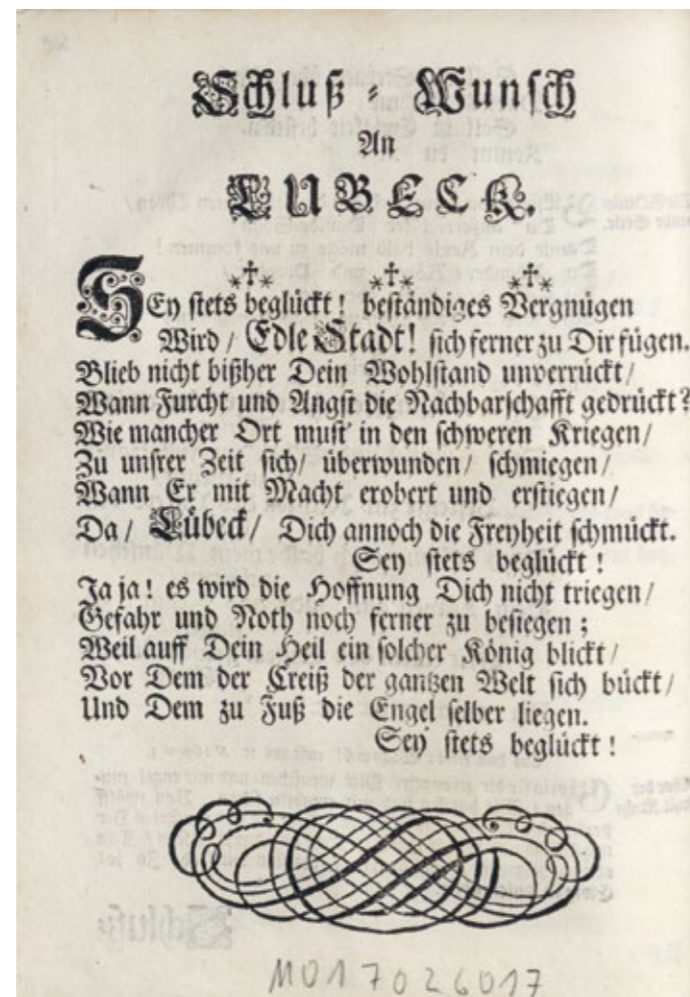 Schluß - Wunsch
An
LUBECK.
SEy stets beglückt! beständiges Vergnügen
Wird / Edle Stadt! sich ferner zu Dir fügen.
Blieb nicht bißher Dein Wohlstand unverrückt /
Wann Furcht und Angst die Nachbarschafft gedrückt?
Wie mancher Ort must' in den schweren Kriegen /
Zu unsrer Zeit sich / überwunden / schmiegen /
Wann Er mit Macht erobert und erstiegen /
Da / Lübeck / Dich annoch die Freyheit schmückt.
Sey stets beglückt!
Ja ja! es wird die Hoffnung Dich nicht triegen /
Gefahr und Noth noch ferner zu besiegen;
Weil auff Dein Heil ein solcher König blickt /
Vor Dem der Creiß der gantzen Welt sich bückt /
Und Dem zu Fuß die Engel selber liegen.
Sey stets beglückt!
M017026017